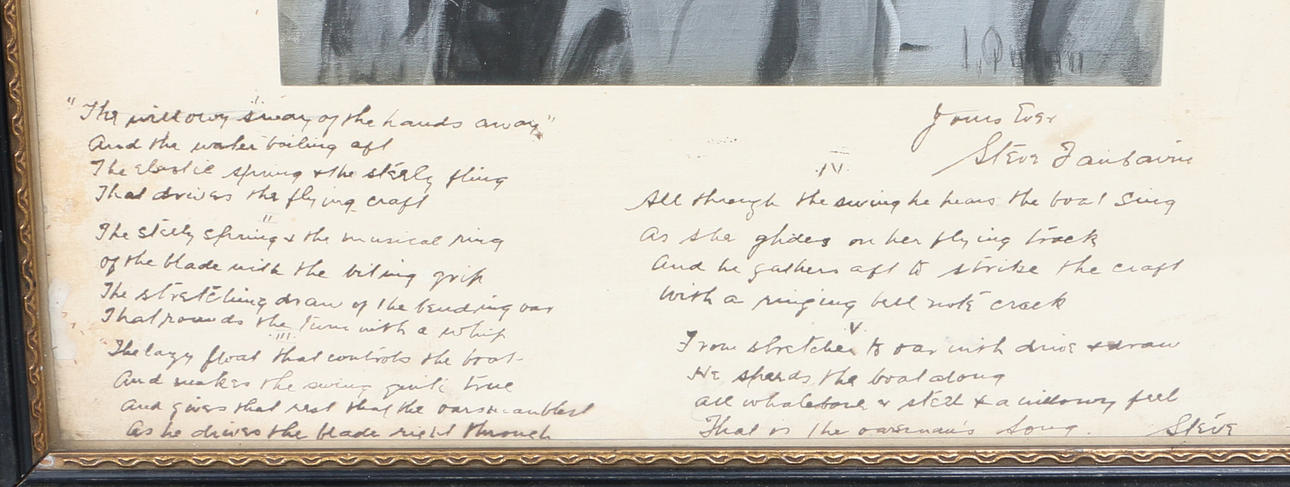 Yours Ever
Steve Fairbairn
.I.
"The willowy sway of the hands away"
And the water boiling aft
The elastic spring & the steely fling
That drives the flying craft
II
The steely spring & the musical ring
of the blade with the biting grip
The stretching draw of the bending oar
That rounds the turn with a whip
III
The lazy float that controls the boat
And makes the swing quite true
And gives that rest that the oarsman blest
As he drives the blade right through
.IV.
All through the swing he hears the boat sing
As she glides on her flying track
And he gathers aft to strike the craft
With a ringing bell note crack
V
From stretcher to oar with drive & draw
He speeds the boat along
All whalebone & steel & a willowy feel
That is the oarsman's song.
Steve